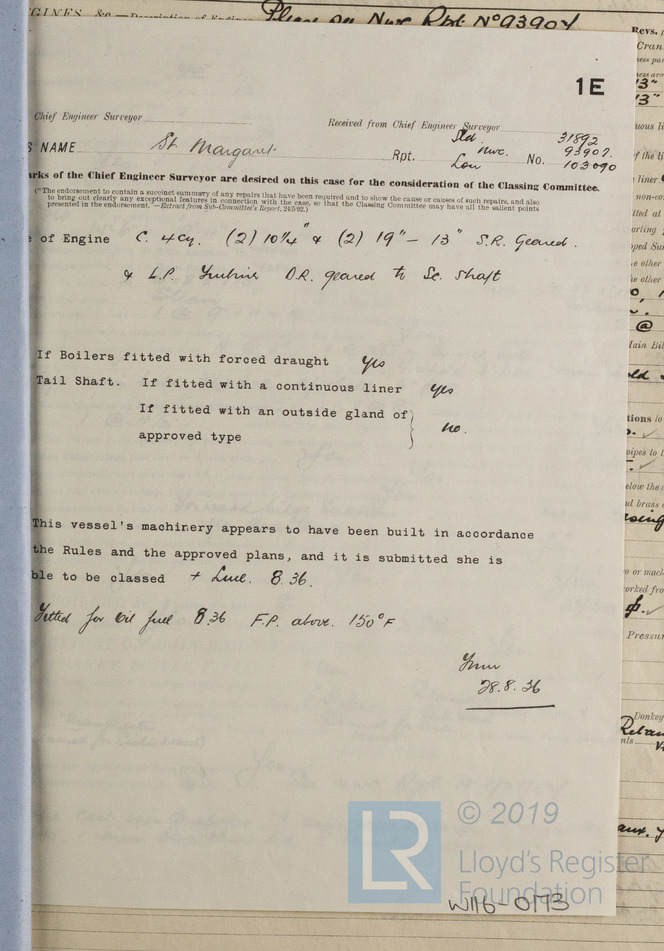 GINES, &c.—Description of Engines
Please see Nwc Rpt. No 93907
1E
Chief Engineer Surveyor
Received from Chief Engineer Surveyor
S NAME St Margaret. Rpt. Sld. Nwc. Lon No. 31892 93907. 103090
arks of the Chief Engineer Surveyor are desired on this case for the consideration of the Classing Committee.
("The endorsement to contain a succinct summary of any repairs that have been required and to show the cause or causes of such repairs, and also
to bring out clearly any exceptional features in connection with the case, so that the Classing Committee may have all the salient points
presented in the endorsement."—Extract from Sub-Committee's Report, 24/5/02.)
e of Engine C. 4 Cy. (2) 10¼" & (2) 19" – 13" S.R. Geared.
& L.P. Turbine D.R. geared to Sc. Shaft
If Boilers fitted with forced draught yes
Tail Shaft. If fitted with a continuous liner yes
If fitted with an outside gland of
approved type no.
This vessel's machinery appears to have been built in accordance
the Rules and the approved plans, and it is submitted she is
ble to be classed + LMC. 8.36.
Fitted for oil fuel 8.36 F.P. above. 150°F
28.8.36
© 2019
LR
Lloyd's Register
Foundation
W116-0173
Revs.
Cran
13"
13"
liner
non-co
tted at
orting
e other
he other
@
Main Bil
tions to
pipes to t
elow the
d brass
o or mach
orked fro
Pressur
Donkey
nts